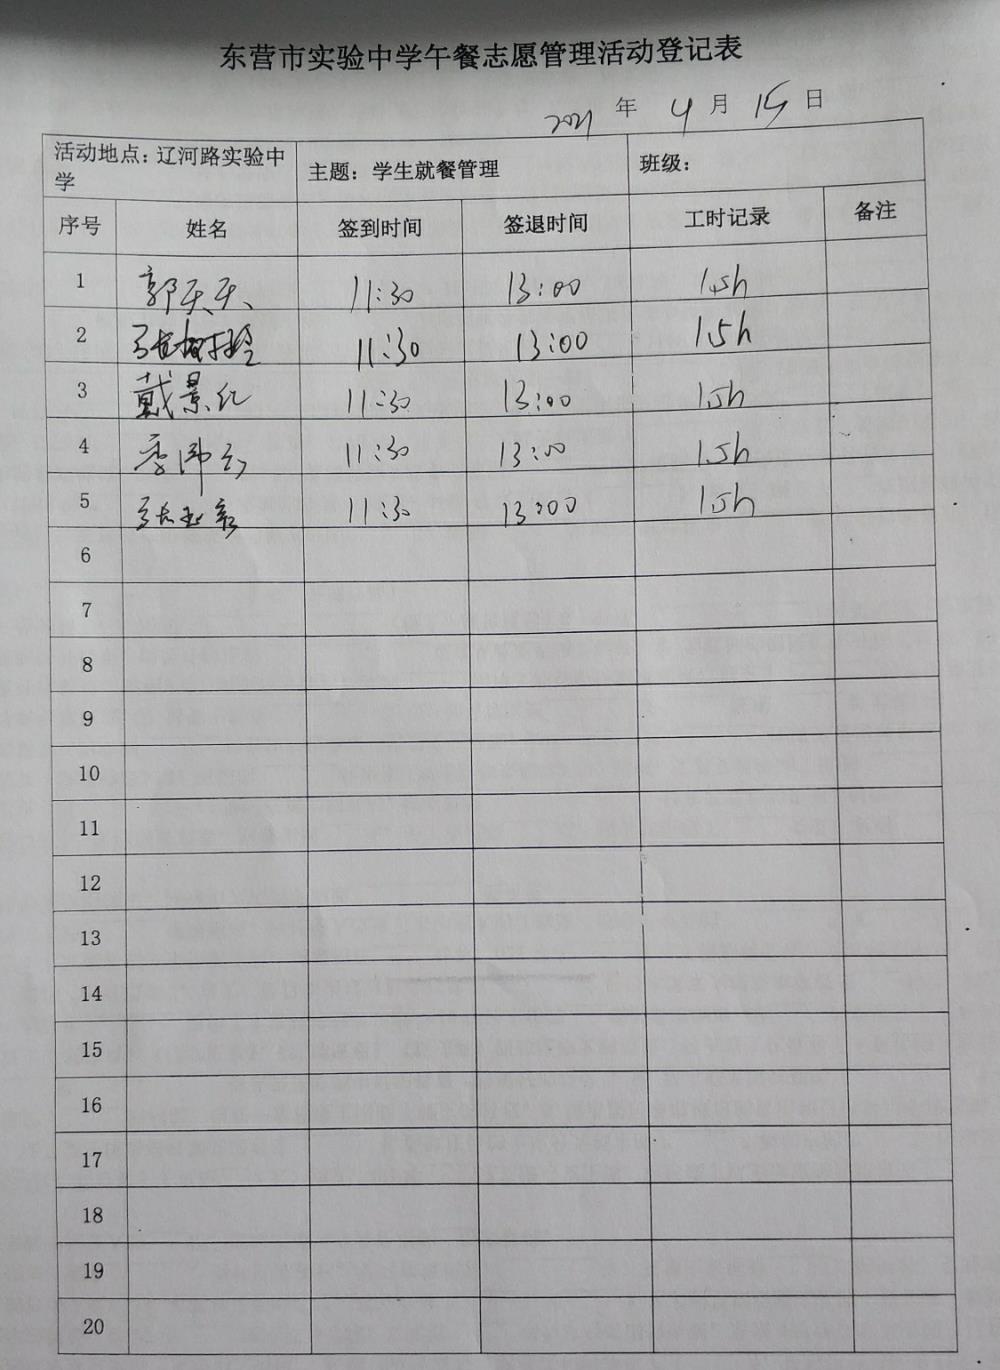 东营市实验中学午餐志愿管理活动登记表
2021 年 4 月 15 日
活动地点：辽河路实验中学 主题：学生就餐管理 班级：
序号 姓名 签到时间 签退时间 工时记录 备注
1 郭天天 11:30 13:00 1.5h
2 张树玲 11:30 13:00 1.5h
3 戴景红 11:30 13:00 1.5h
4 11:30 13:00 1.5h
5 张 11:30 13:00 1.5h
6
7
8
9
10
11
12
13
14
15
16
17
18
19
20